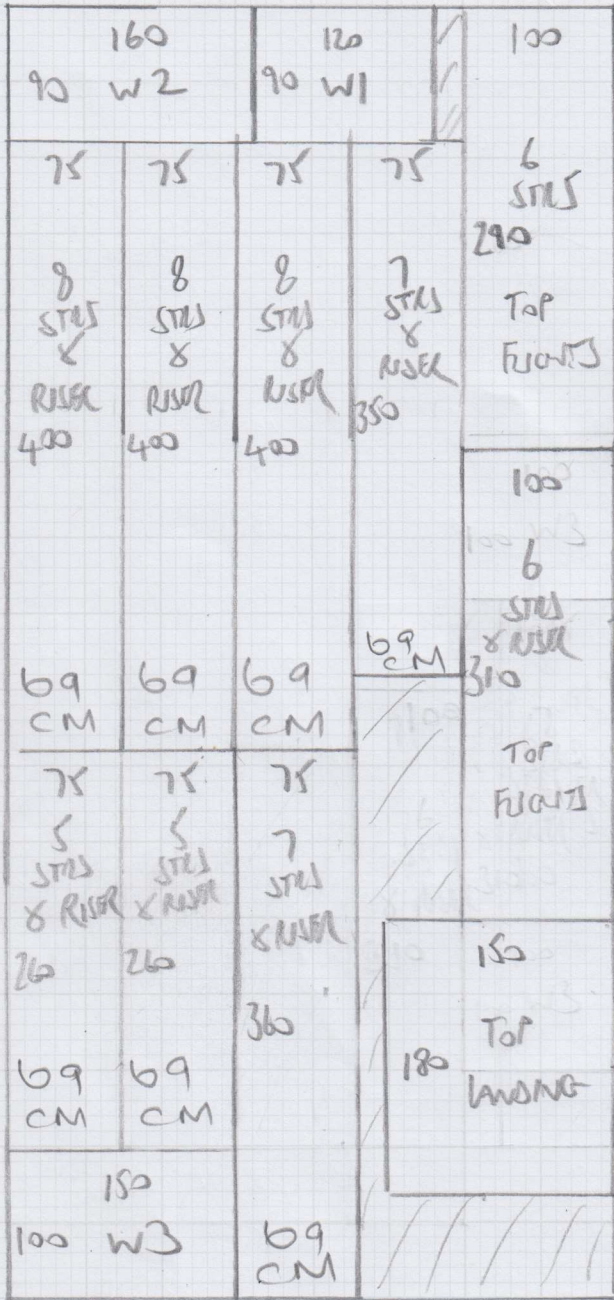 160
90 W2
120
90 W1
100
6
STRS
290
TOP
FLIGHTS
75
8
STRS
&
RISER
400
69
CM
75
8
STRS
&
RISER
400
69
CM
75
8
STRS
&
RISER
400
69
CM
75
7
STRS
&
RISER
350
69
CM
100
6
STRS
& RISER
310
TOP
FLIGHTS
75
5
STRS
& RISER
260
69
CM
75
5
STRS
& RISER
260
69
CM
75
7
STRS
& RISER
360
69
CM
150
TOP
180
LANDING
150
100 W3